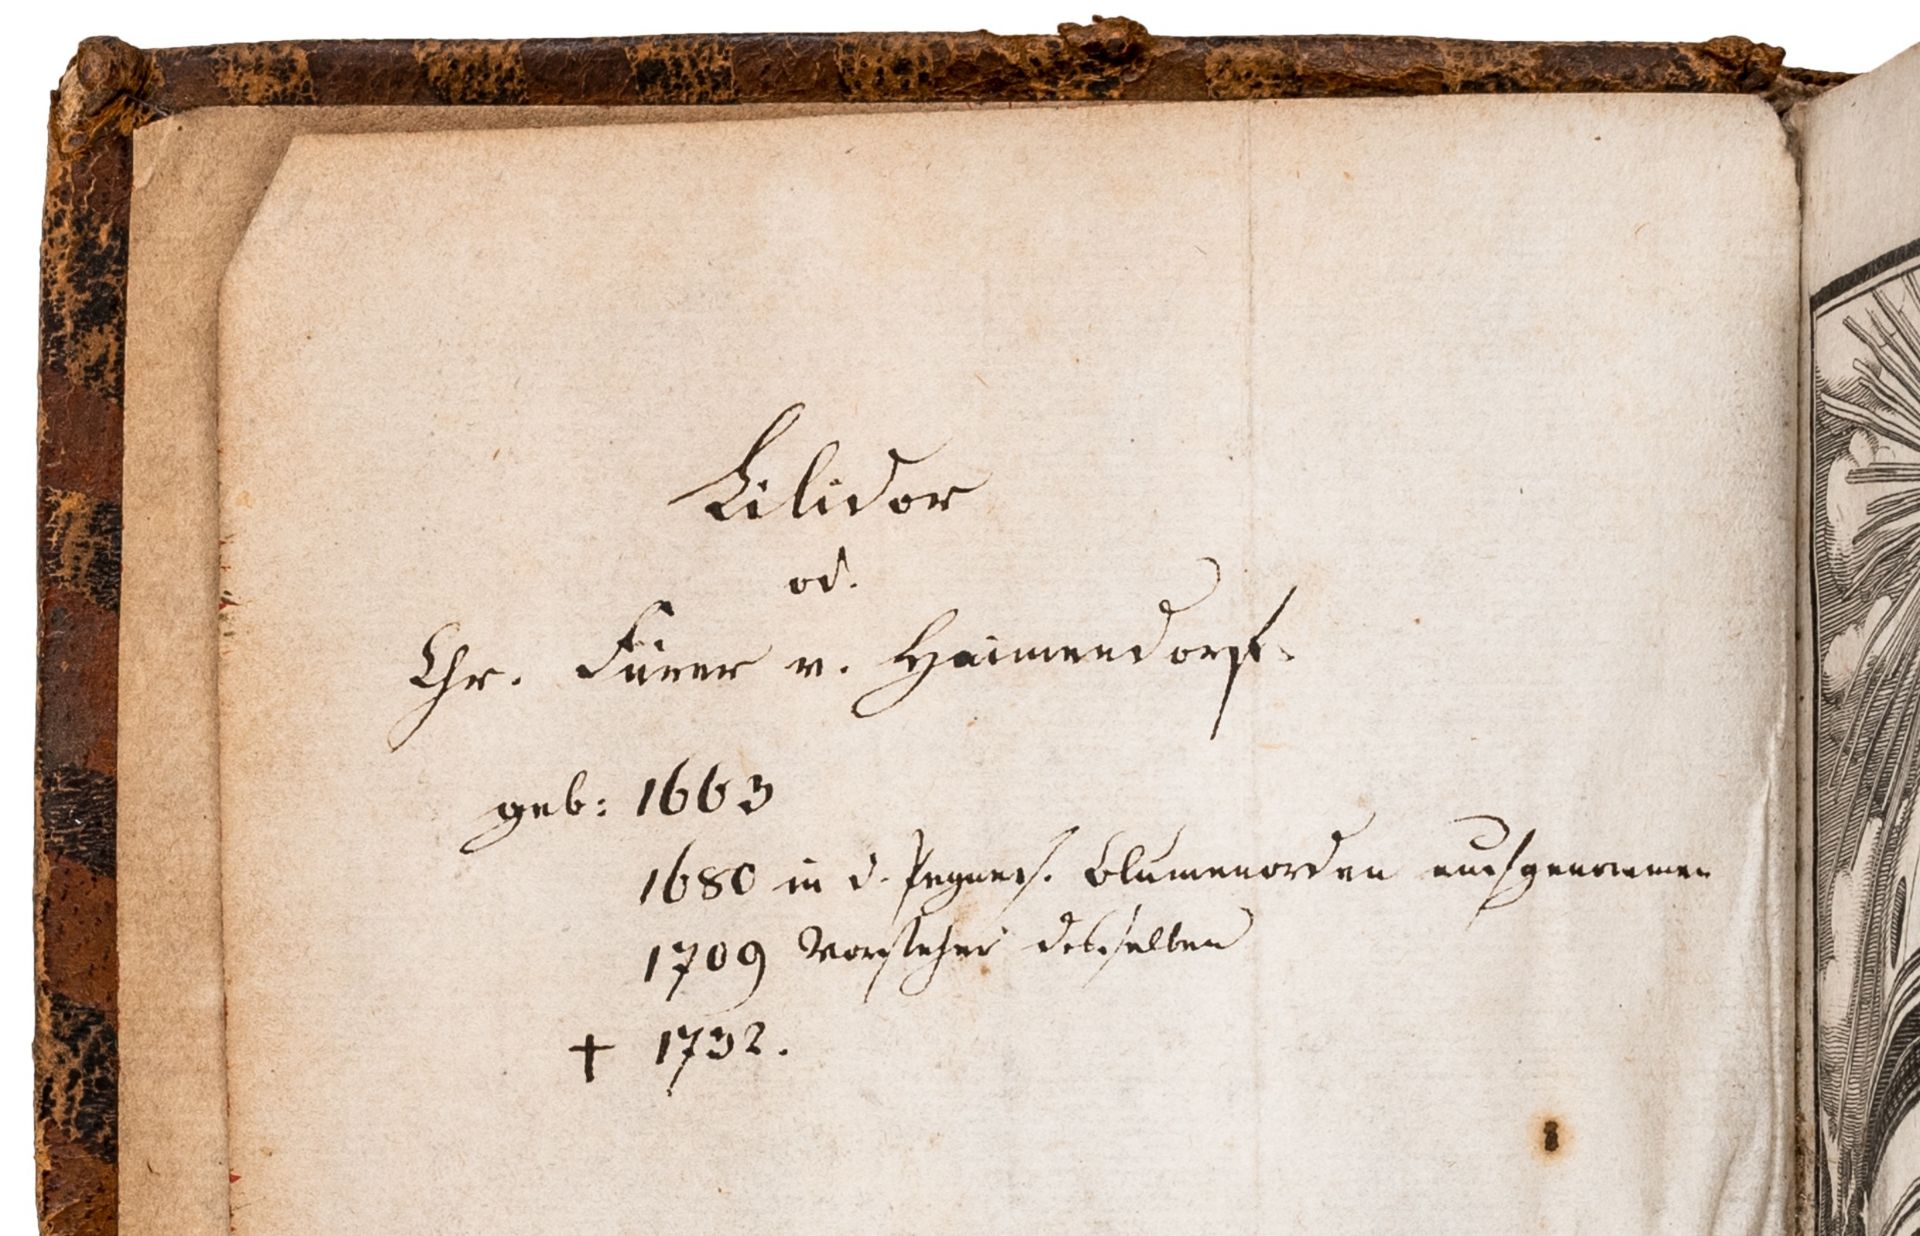 Lilidor
od.
Chr. Fürer v. Haimendorf.
geb: 1663
1680 in d. Pegnes. Blumenorden aufgenommen
1709 Vorsteher desselben
† 1732.